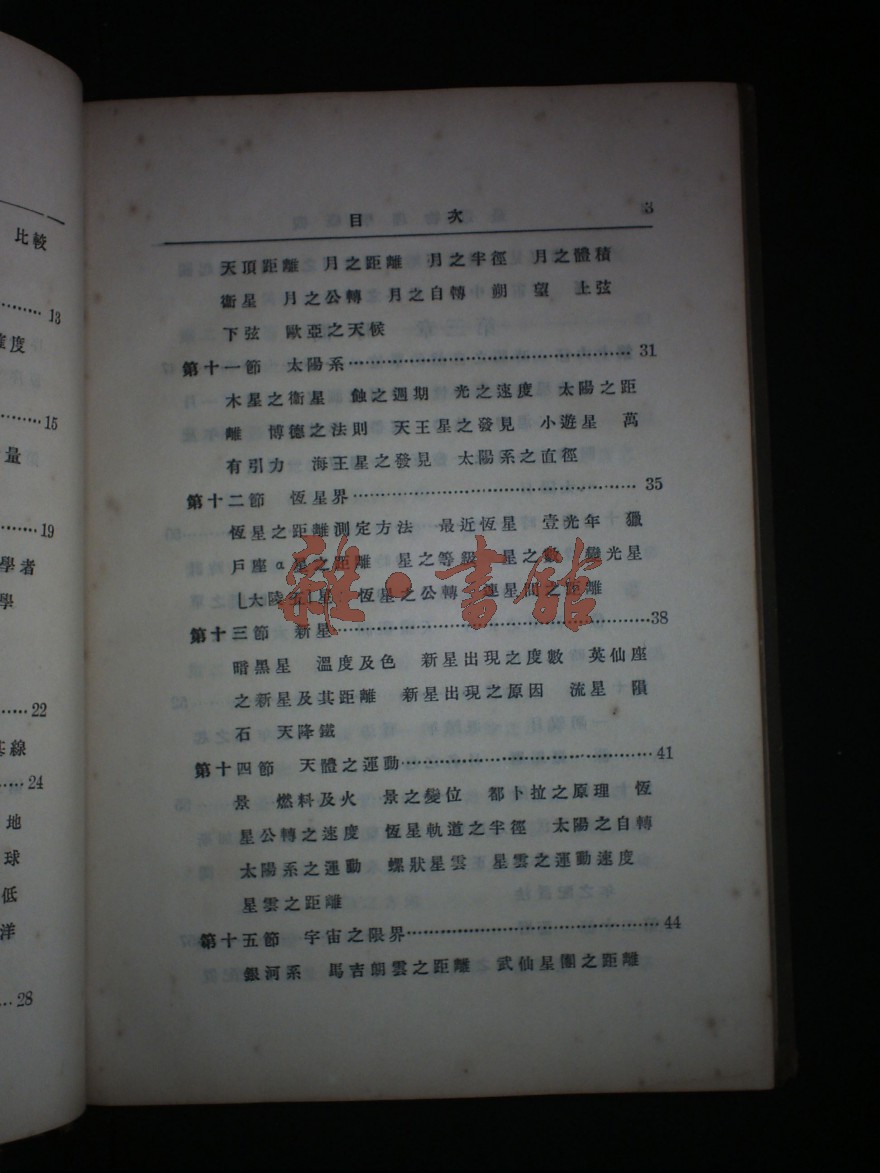 比較
13
度
15
量
19
學者
學
22
基線
24
地
球
低
洋
28
目次 3
天頂距離 月之距離 月之半徑 月之體積
衞星 月之公轉 月之自轉 朔 望 上弦
下弦 歐亞之天候
第十一節 太陽系…………31
木星之衞星 蝕之週期 光之速度 太陽之距
離 博德之法則 天王星之發見 小遊星 萬
有引力 海王星之發見 太陽系之直徑
第十二節 恆星界…………35
恆星之距離測定方法 最近恆星 壹光年 獵
戶座α星之距離 星之等級 星之數 變光星
[大陵五]星 恆星之公轉 連星間之距離
第十三節 新星…………38
暗黑星 溫度及色 新星出現之度數 英仙座
之新星及其距離 新星出現之原因 流星 隕
石 天降鐵
第十四節 天體之運動…………41
景 燃料及火 景之變位 都卜拉之原理 恆
星公轉之速度 恆星軌道之半徑 太陽之自轉
太陽系之運動 螺狀星雲 星雲之運動速度
星雲之距離
第十五節 宇宙之限界…………44
銀河系 馬吉朗雲之距離 武仙星團之距離
雜·書館